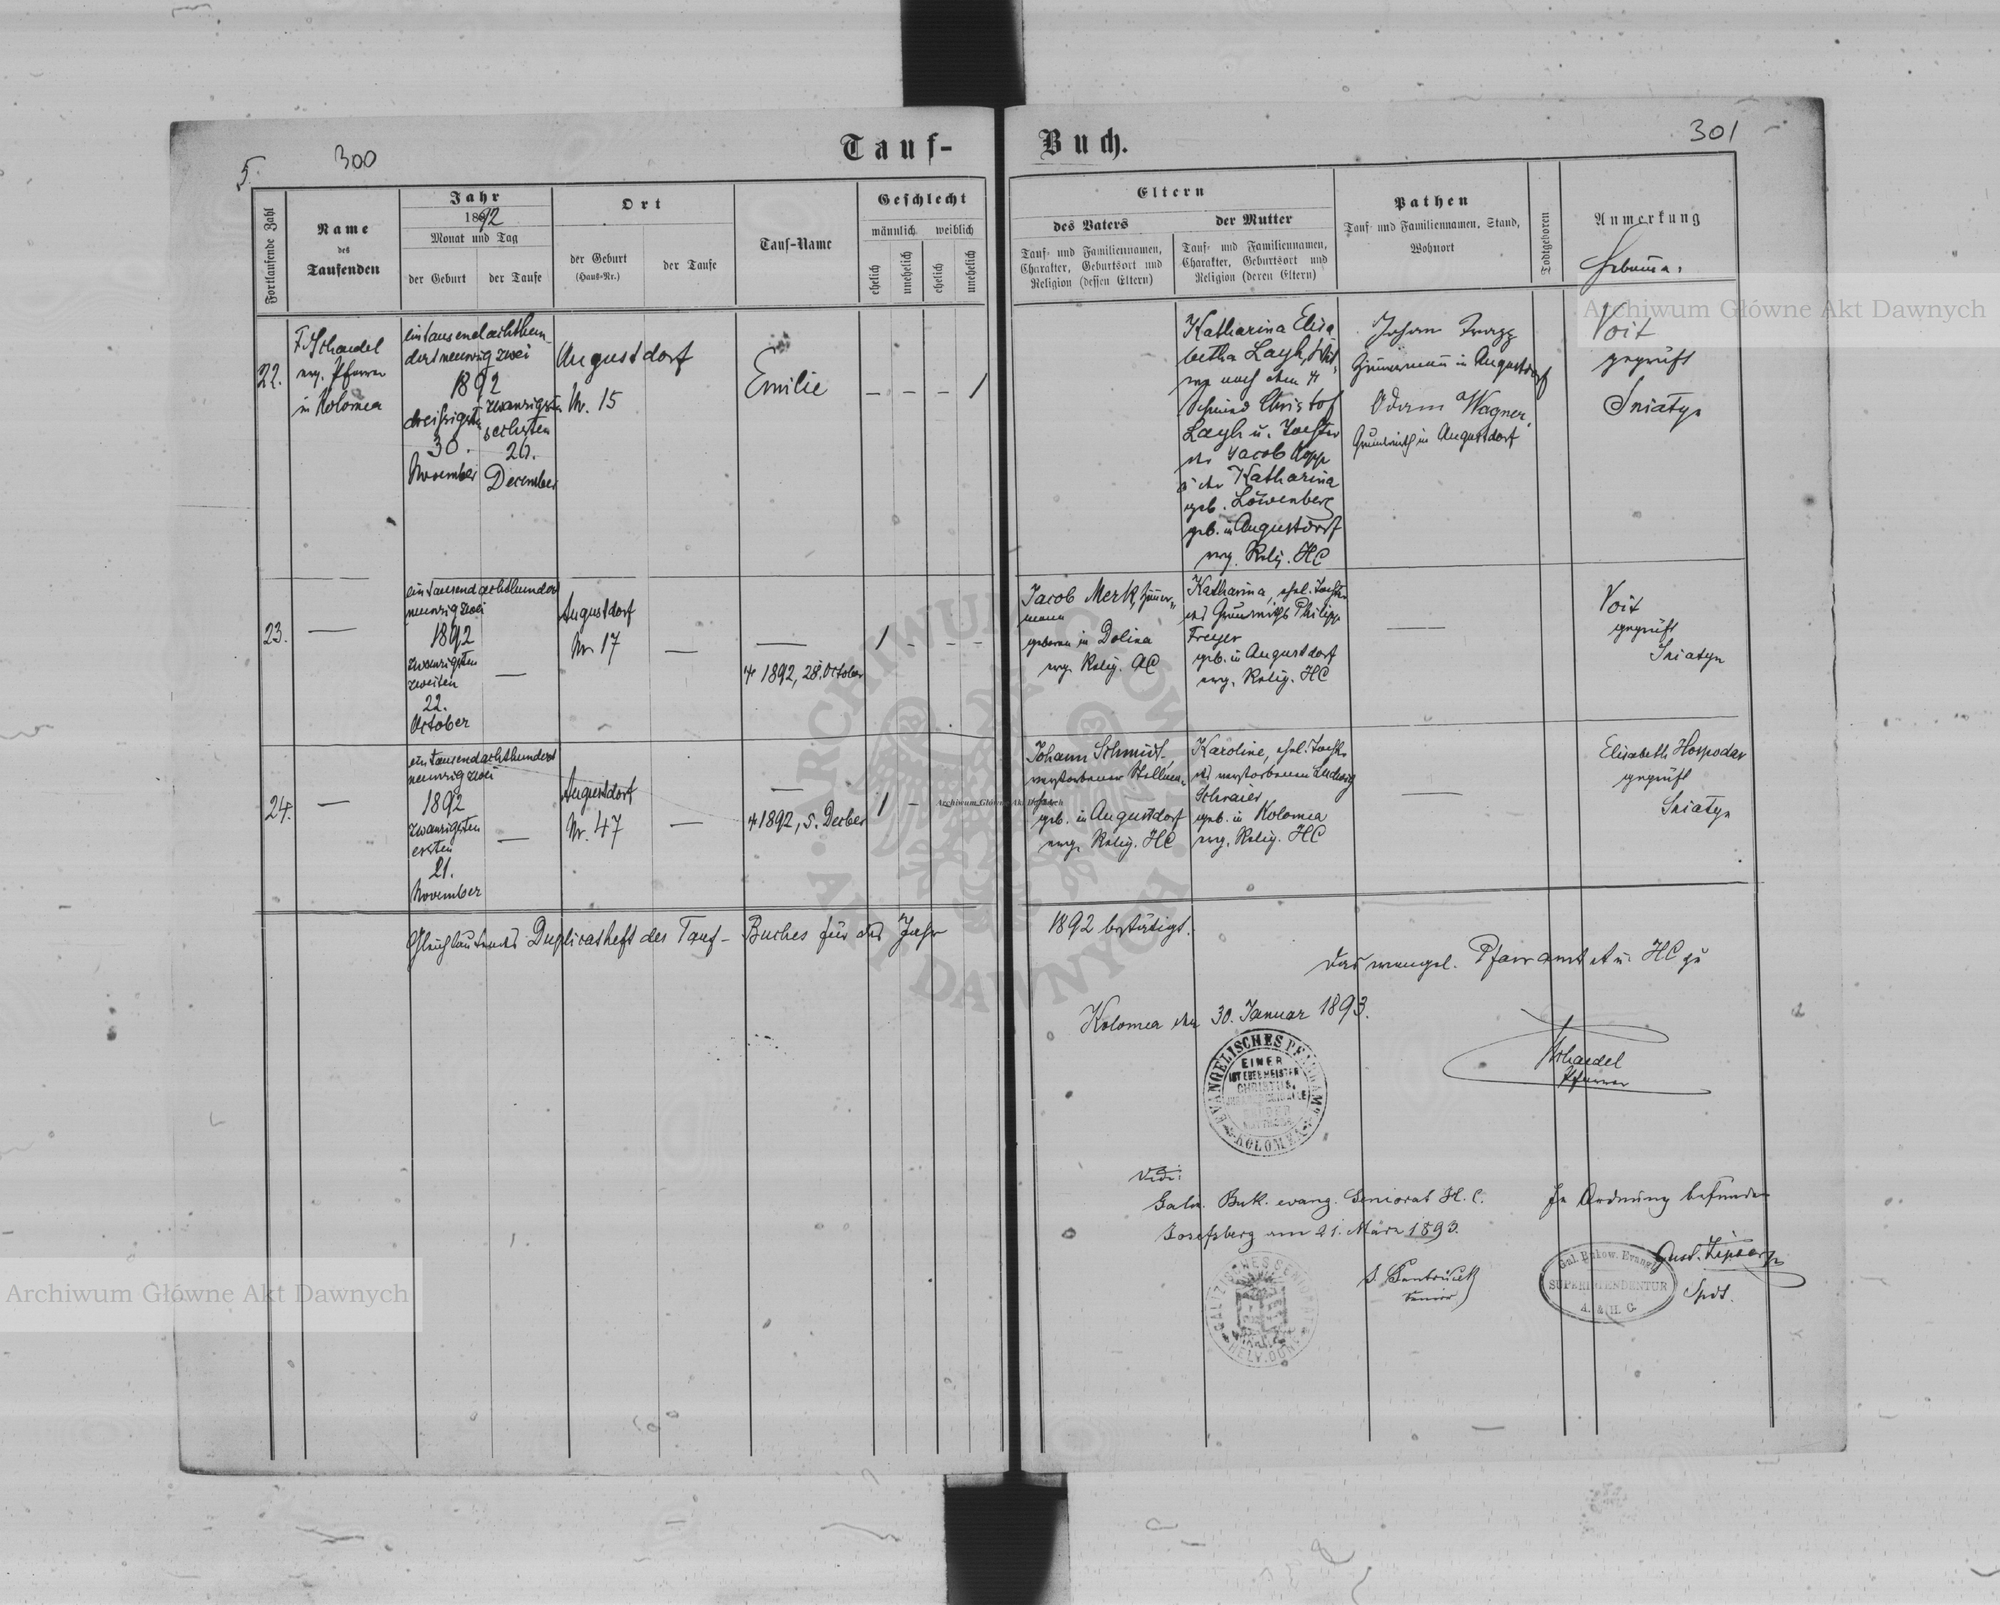 5.
300
Tauf-
Buch.
301
Fortlaufende Zahl
Name
des
Taufenden
Jahr
1892
Monat und Tag
der Geburt
der Taufe
Ort
der Geburt
(Haus-Nr.)
der Taufe
Tauf-Name
Geschlecht
männlich
weiblich
ehelich
unehelich
ehelich
unehelich
Eltern
des Vaters
Tauf- und Familiennamen,
Charakter, Geburtsort und
Religion (dessen Eltern)
der Mutter
Tauf- und Familiennamen,
Charakter, Geburtsort und
Religion (deren Eltern)
Pathen
Tauf- und Familiennamen, Stand,
Wohnort
Todtgeboren
Anmerkung
22.
Schaedel
evg. Pfarrer
in Kolomea
eintausendachthun-
dertneunzig zwei
1892
dreißigsten
30.
November
zwanzigsten
sechsten
26.
December
Augustdorf
Nr. 15
Emilie
– – – 1
Katharina Elisa
betha Layh, Wit-
we nach dem †
Schmied Christof
Layh u. Tochter
des Jacob Kopp
u. der Katharina
geb. Löwenberg
geb. in Augustdorf
evg. Relig. HC
Johann
Zimmermann in Augustdorf
Adam Wagner,
Grundwirth in Augustdorf
Voit
geprüft
Sniatyn
23.
—
eintausendachthundert
neunzig zwei
1892
zwanzigsten
zweiten
22.
October
—
Augustdorf
Nr. 17
—
—
† 1892, 28. October
1 – – –
Jacob Merk, Zimmer-
mann
geboren in Dolina
evg. Relig. AC
Katharina, ehel. Tochter
des Grundwirths Philipp
Freyer
geb. in Augustdorf
evg. Relig. HC
—
Voit
geprüft
Sniatyn
24.
—
eintausendachthundert
neunzig zwei
1892
zwanzigsten
ersten
21.
November
—
Augustdorf
Nr. 47
—
—
† 1892, 5. Decber
1 –
Johann Schmidt,
verstorbener
geb. in Augustdorf
evg. Relig. HC
Karoline, ehel. Tochter
des verstorbenen Ludwig
Schraier
geb. in Kolomea
evg. Relig. HC
—
Elisabeth Hospodar
geprüft
Sniatyn
Gleichlautendes Duplicatheft des Tauf- Buches für das Jahr
1892 bestätigt.
Das evangel. Pfarramt A u. HC zu
Kolomea den 30. Januar 1893.
Schaedel
Pfarrer
EVANGELISCHES PFARRAMT
EINER
IST EUER MEISTER
CHRISTUS,
KOLOMEA
Vidi:
Galiz. Buk. evang. Seniorat H. C.
Josefsberg am 21. März 1893.
Senior
GALIZISCHES SENIORAT
HELV. CONF.
In Ordnung befunden
Gal. Bukow. Evang.
SUPERINTENDENTUR
A. & H. C.
Spdt.
Archiwum Główne Akt Dawnych
Archiwum Główne Akt Dawnych
Archiwum Główne Akt Dawnych
ARCHIWUM GŁÓWNE
AKT DAWNYCH